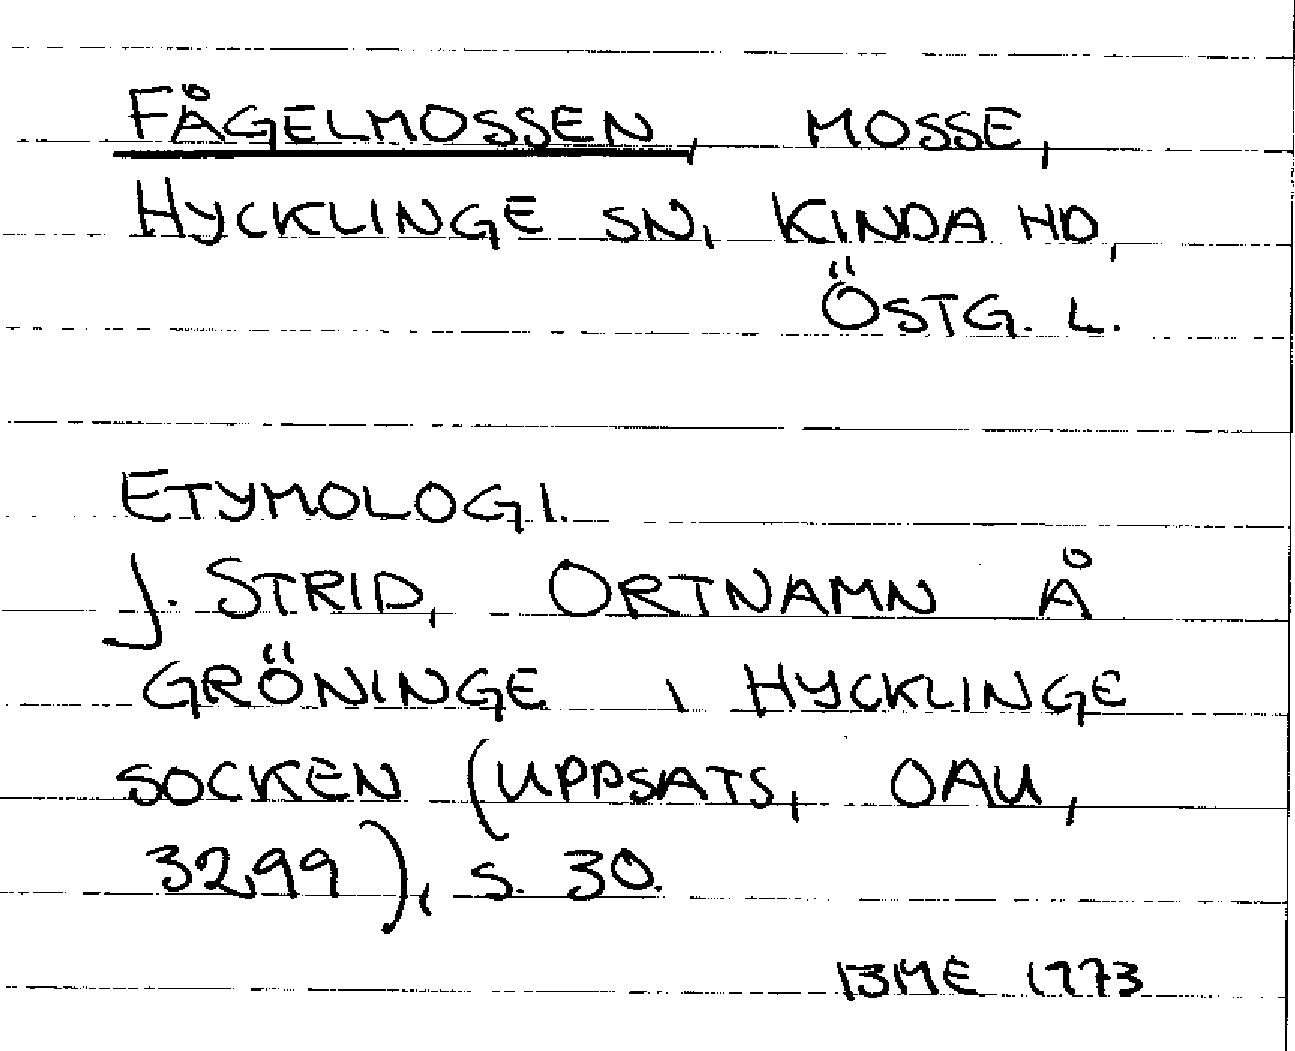 FÅGELMOSSEN, MOSSE,
HYCKLINGE SN, KINDA HD,
ÖSTG. L.
ETYMOLOGI.
J. STRID, ORTNAMN Å
GRÖNINGE I HYCKLINGE
SOCKEN (UPPSATS, OAU,
3299), S. 30.
BME 1973